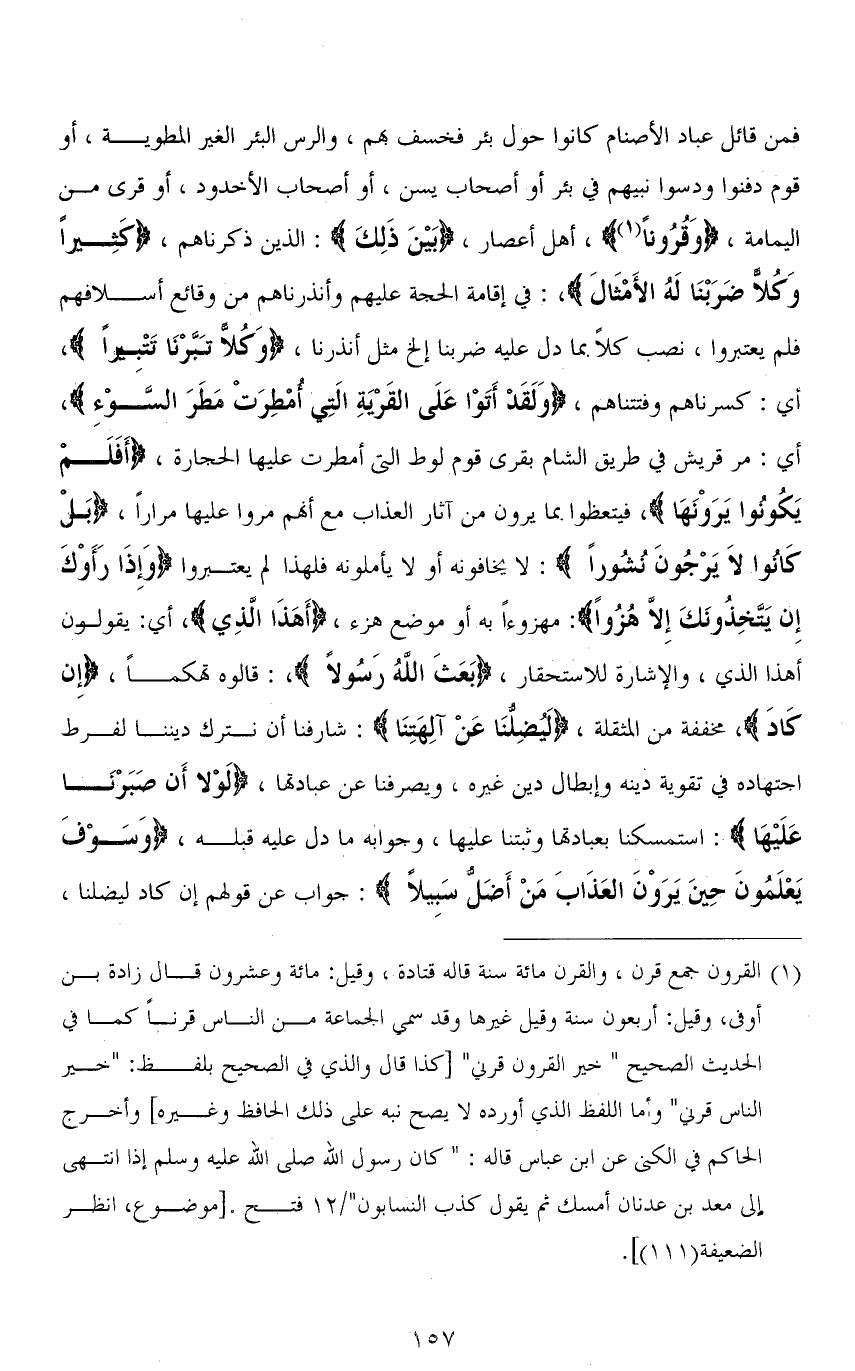 فمن قائل عباد الأصنام كانوا حول بئر فخسف بهم ، والرس البئر الغير المطوية ، أو
قوم دفنوا ودسوا نبيهم في بئر أو أصحاب يسن ، أو أصحاب الأخدود ، أو قرى من
اليمامة ، ﴿وَقُرُوناً(١)﴾ ، أهل أعصار ، ﴿بَيْنَ ذَلِكَ ﴾ : الذين ذكرناهم ، ﴿كَثِيراً
وَكُلاًّ ضَرَبْنَا لَهُ الأَمْثَالَ ﴾، : في إقامة الحجة عليهم وأنذرناهم من وقائع أسلافهم
فلم يعتبروا ، نصب كلاً بما دل عليه ضربنا إلخ مثل أنذرنا ، ﴿وَكُلاًّ تَبَّرْنَا تَتْبِيراً ﴾،
أي : كسرناهم وفتتناهم ، ﴿وَلَقَدْ أَتَوْا عَلَى القَرْيَةِ الَتِي أُمْطِرَتْ مَطَرَ السَّوْءِ ﴾،
أي : مر قريش في طريق الشام بقرى قوم لوط التى أمطرت عليها الحجارة ، ﴿أَفَلَمْ
يَكُونُوا يَرَوْنَهَا ﴾، فيتعظوا بما يرون من آثار العذاب مع أنهم مروا عليها مراراً ، ﴿بَلْ
كَانُوا لاَ يَرْجُونَ نُشُوراً ﴾ : لا يخافونه أو لا يأملونه فلهذا لم يعتبروا ﴿وَإِذَا رَأَوْكَ
إِن يَتَّخِذُونَكَ إِلاَّ هُزُواً﴾: مهزوءاً به أو موضع هزء ، ﴿أَهَذَا الَّذِي ﴾، أي: يقولون
أهذا الذي ، والإشارة للاستحقار ، ﴿بَعَثَ اللَّهُ رَسُولاً ﴾، : قالوه تهكماً ، ﴿إِن
كَادَ ﴾، مخففة من المثقلة ، ﴿لَيُضِلُّنَا عَنْ آلِهَتِنَا ﴾ : شارفنا أن نترك ديننا لفرط
اجتهاده في تقوية دينه وإبطال دين غيره ، ويصرفنا عن عبادتها ، ﴿لَوْلا أَن صَبَرْنَا
عَلَيْهَا ﴾ : استمسكنا بعبادتها وثبتنا عليها ، وجوابه ما دل عليه قبله ، ﴿وَسَوْفَ
يَعْلَمُونَ حِينَ يَرَوْنَ العَذَابَ مَنْ أَضَلُّ سَبِيلاً ﴾ : جواب عن قولهم إن كاد ليضلنا ،
(١) القرون جمع قرن ، والقرن مائة سنة قاله قتادة ، وقيل: مائة وعشرون قال زادة بن
أوفى، وقيل: أربعون سنة وقيل غيرها وقد سمي الجماعة من الناس قرناً كما في
الحديث الصحيح " خير القرون قرني" [كذا قال والذي في الصحيح بلفظ: "خير
الناس قرني" وأما اللفظ الذي أورده لا يصح نبه على ذلك الحافظ وغيره] وأخرج
الحاكم في الكنى عن ابن عباس قاله : " كان رسول الله صلى الله عليه وسلم إذا انتهى
إلى معد بن عدنان أمسك ثم يقول كذب النسابون"/١٢ فتح .[موضوع، انظر
الضعيفة(١١١)].
١٥٧